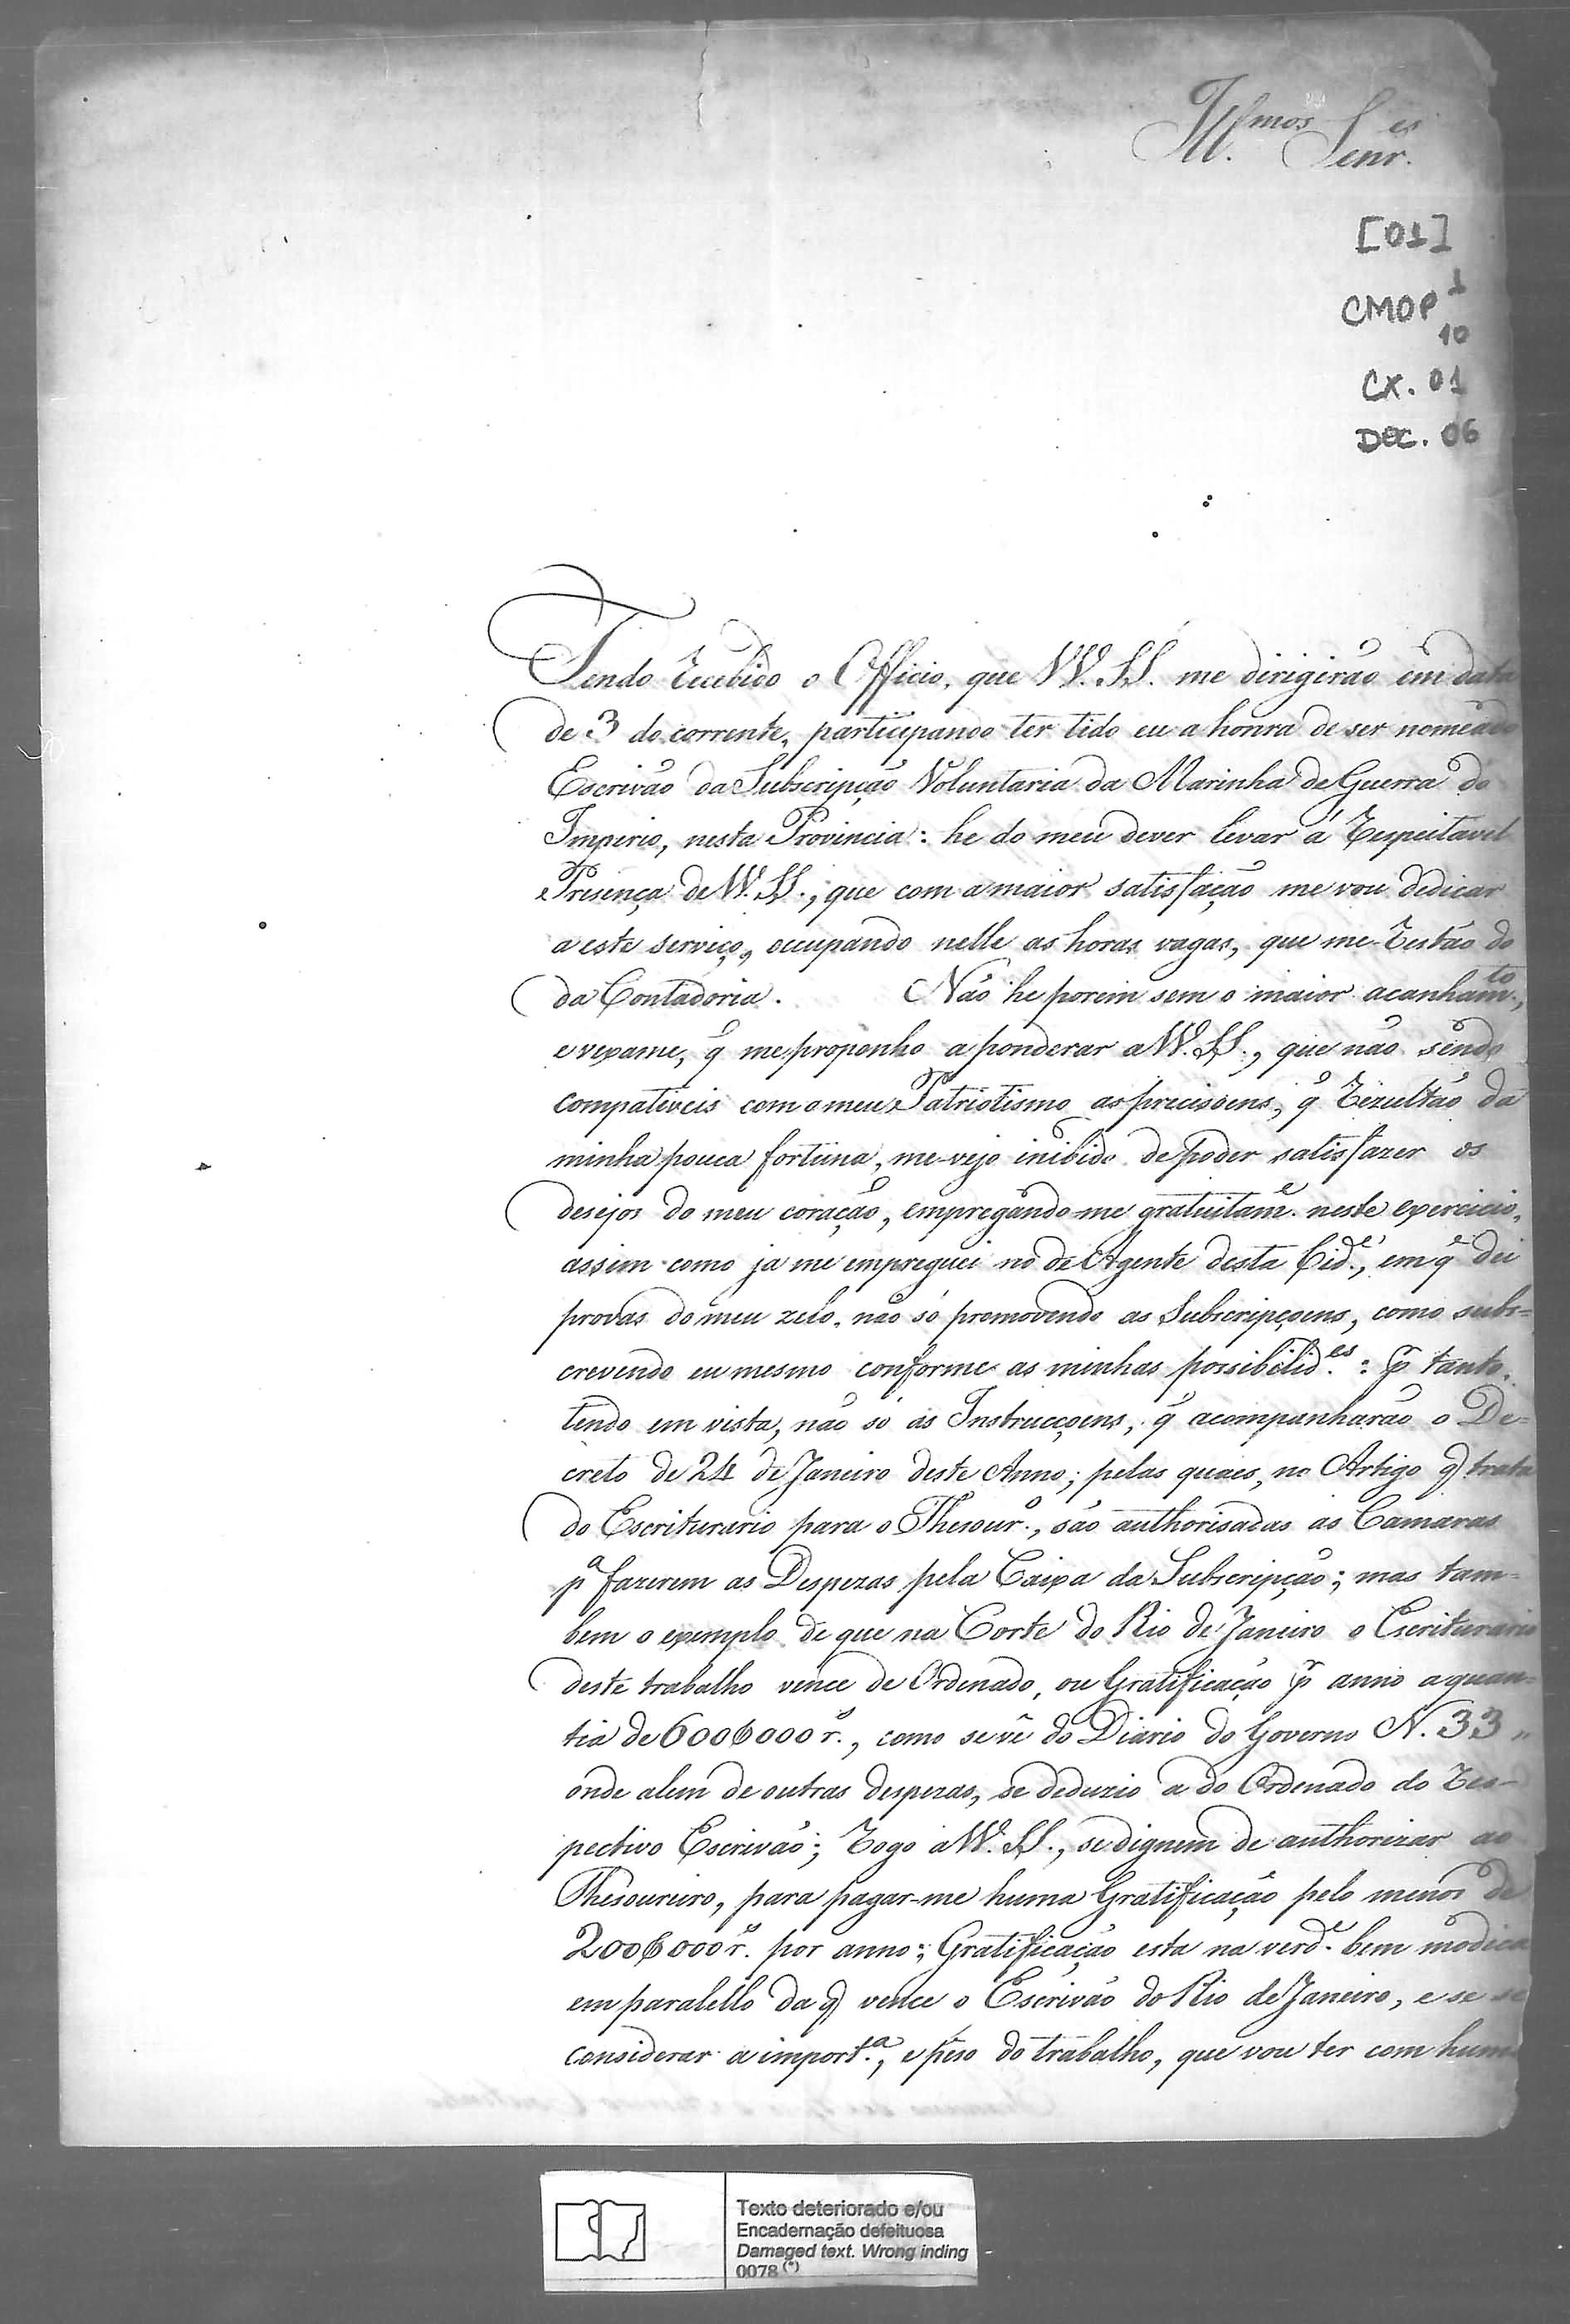 Ill.mos Senr.es
[01]
CMOP 1
10
CX. 01
DOC. 06
Tendo recebido o Officio, que VV. SS. me dirigirão em data
de 3 do corrente, participando ter tido eu a honra de ser nomeado
Escrivão da Subscripção Voluntaria da Marinha de Guerra do
Imperio, nesta Provincia: he do meu dever levar á respeitavel
Presença de VV. SS., que com a maior satisfação me vou dedicar
a este serviço, occupando nelle as horas vagas, que me-restão do
da Contadoria. Não he porem sem o maior acanham.to,
e vexame, q̃ me proponho a ponderar a VV. SS., que não sendo
compativeis com o meu Patriotismo as precisoens, q̃ rezultão da
minha pouca fortuna, me-vejo inibido de poder satisfazer os
desejos do meu coração, empregando-me gratuitam.e neste exercicio,
assim como ja me empreguei no de Agente desta Cid.e, em q̃ dei
provas do meu zelo, não só promovendo as Subscripçoens, como subs=
crevendo eu mesmo conforme as minhas possibilid.es: p̃ tanto,
tendo em vista, não só as Instrucçoens, q̃ acompanharão o De=
creto de 24 de Janeiro deste Anno; pelas quaes, no Artigo q̃ trata
do Escriturario para o Thesour.o, são authorisadas as Camaras
p.a fazerem as Despezas pela Caixa da Subscripção; mas tam=
bem o exemplo de que na Corte do Rio de Janeiro o Escriturario
deste trabalho vence de Ordenado, ou Gratificação p̃ anno a quan=
tia de 600$000 r.s, como se vê do Diario do Governo N. 33 "
onde alem de outras despezas, se deduzio a do Ordenado do res-
pectivo Escrivão; rogo a VV. SS., se dignem de authorizar ao
Thesoureiro, para pagar-me huma Gratificação pelo menos de
200$000 r.s por anno; Gratificação esta na verd.e bem modica
em paralello da q̃ vence o Escrivão do Rio de Janeiro, e se se
considerar a import.a, e pezo do trabalho, que vou ter com huma
Texto deteriorado e/ou
Encadernação defeituosa
Damaged text. Wrong inding
0078 (*)